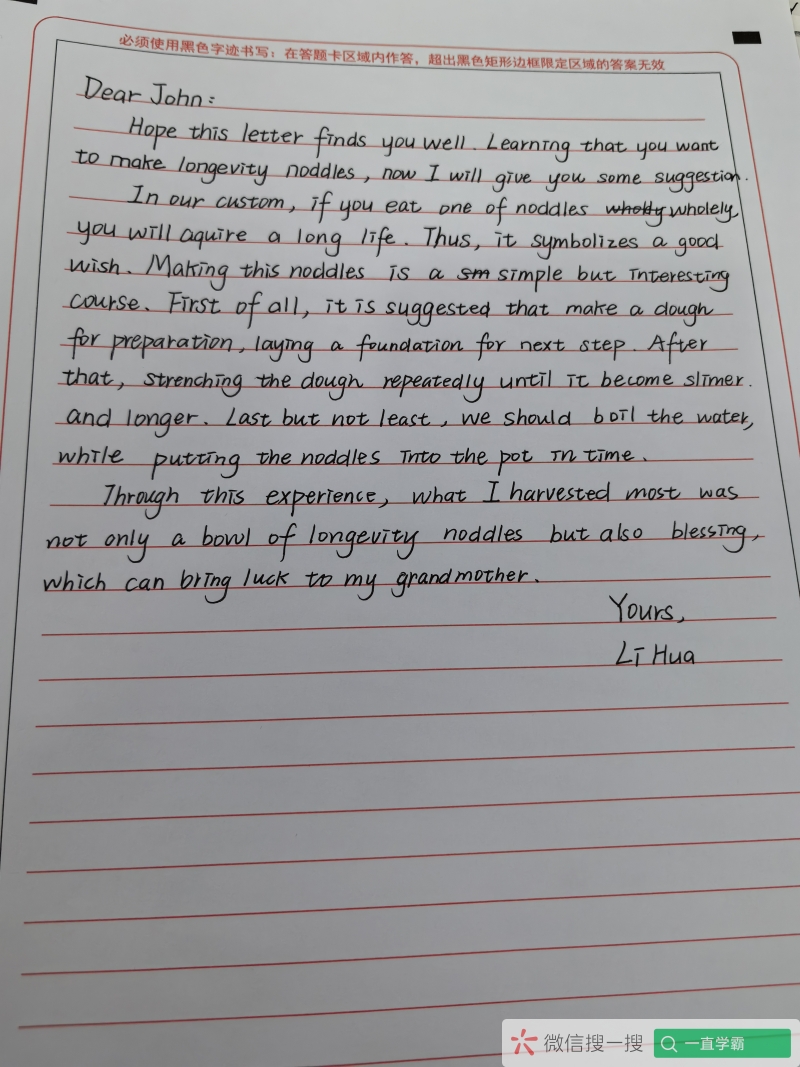 必须使用黑色字迹书写：在答题卡区域内作答，超出黑色矩形边框限定区域的答案无效
Dear John:
Hope this letter finds you well. Learning that you want
to make longevity noddles, now I will give you some suggestion.
In our custom, if you eat one of noddles wholly wholely,
you will aquire a long life. Thus, it symbolizes a good
wish. Making this noddles is a sm simple but interesting
course. First of all, it is suggested that make a dough
for preparation, laying a foundation for next step. After
that, strenching the dough repeatedly until it become slimer.
and longer. Last but not least, we should boil the water,
while putting the noddles into the pot in time.
Through this experience, what I harvested most was
not only a bowl of longevity noddles but also blessing,
which can bring luck to my grandmother.
Yours,
Li Hua
微信搜一搜 一直学霸